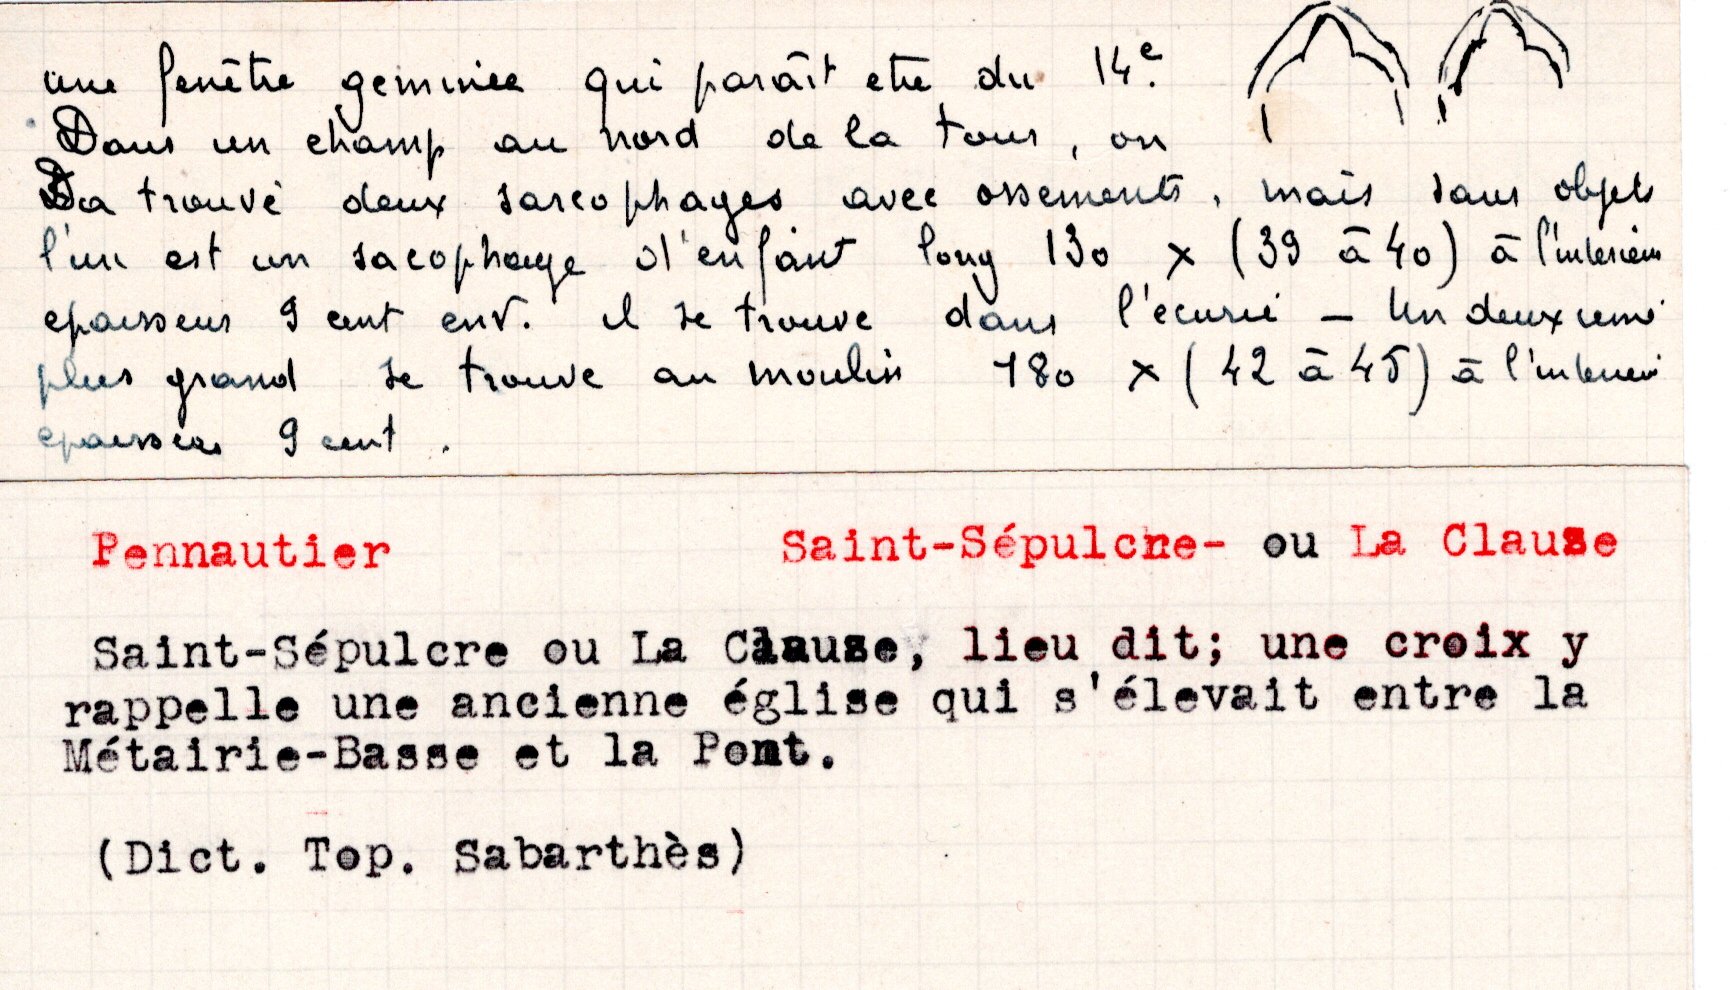 une fenêtre geminée qui paraît etre du 14e.
Dans un champ au nord de la tour, on
a trouvé deux sarcophages avec ossements, mais sans objets
l'un est un sacophage d'enfant long 130 x (39 à 40) à l'interieur
epaisseur 9 cent env. il se trouve dans l'écurie – Un deuxieme
plus grand se trouve au moulin 180 x (42 à 45) à l'interieur
epaisseur 9 cent.
Pennautier Saint-Sépulcre- ou La Clause
Saint-Sépulcre ou La Clause, lieu dit; une croix y
rappelle une ancienne église qui s'élevait entre la
Métairie-Basse et la Pont.
(Dict. Top. Sabarthès)